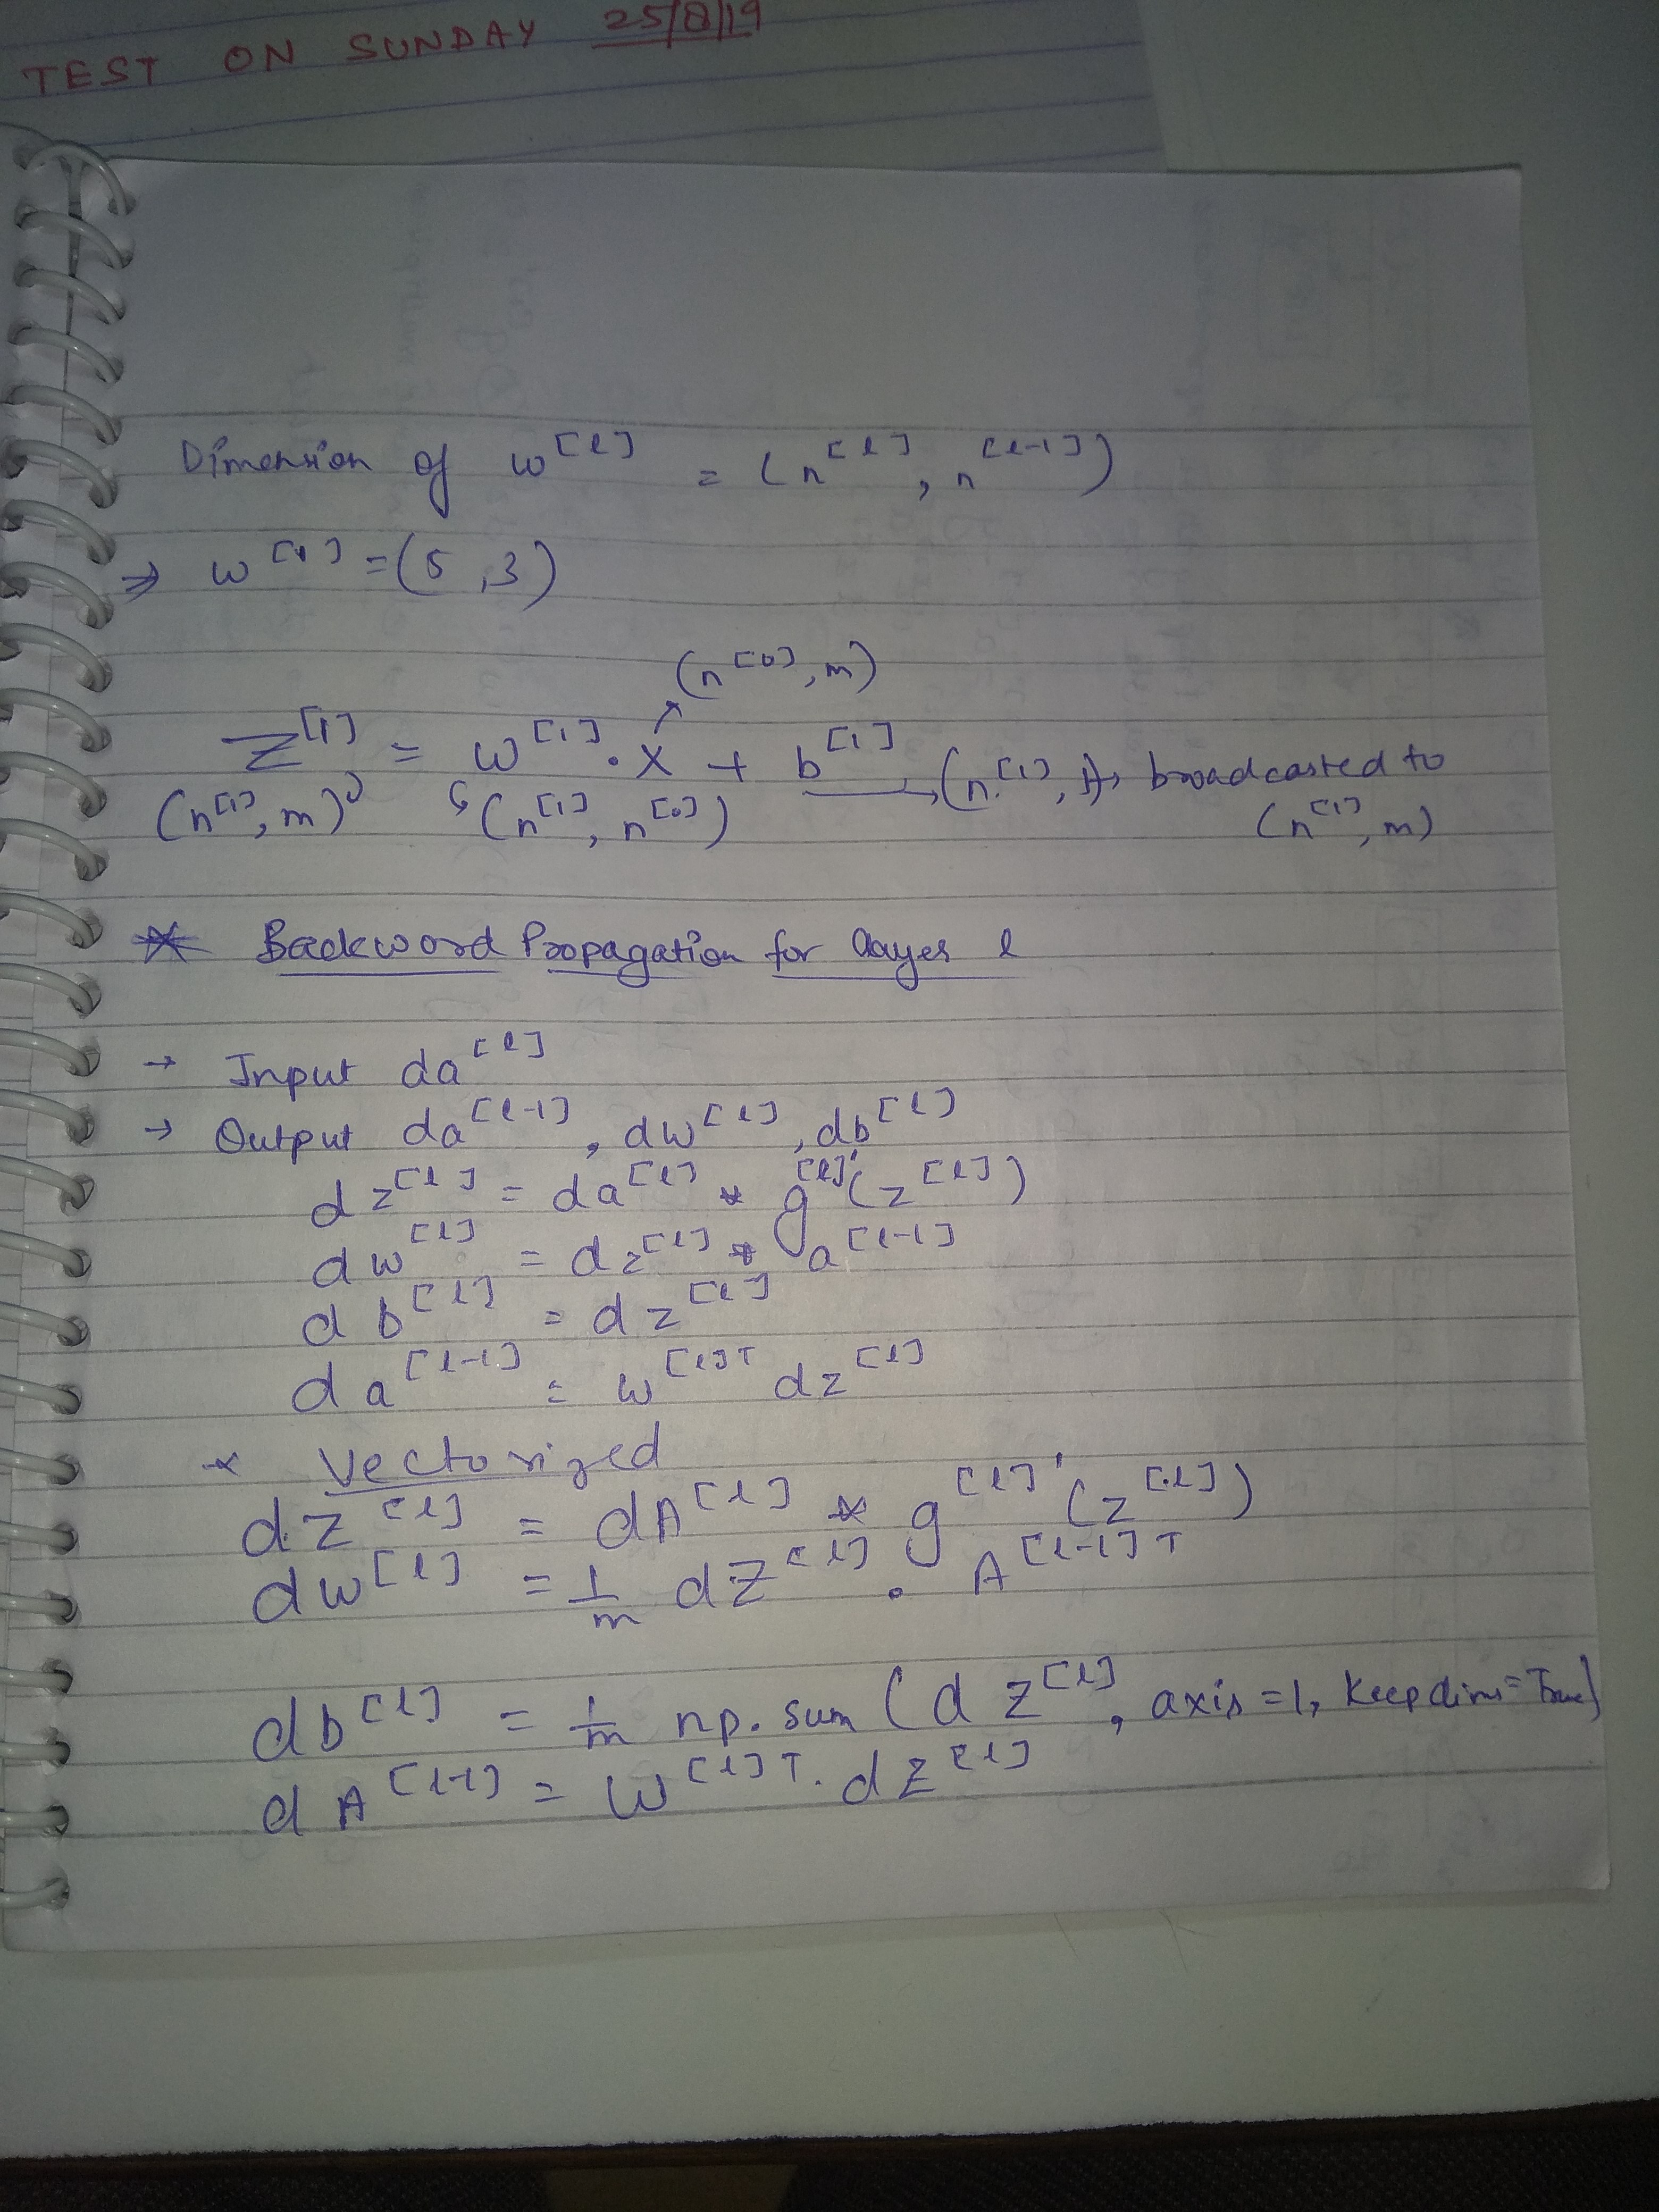 TEST ON SUNDAY 25/8/19
Dimension of w^[l] = (n^[l], n^[l-1])
⇒ w^[1] = (5, 3)
(n^[0], m)
Z^[1] = w^[1] . X + b^[1] → (n^[1], 1), broadcasted to
(n^[1], m) (n^[1], n^[0]) (n^[1], m)
* Backword Propagation for layer l
→ Input da^[l]
→ Output da^[l-1], dw^[l], db^[l]
dz^[l] = da^[l] * g^[l]'(z^[l])
dw^[l] = dz^[l] * a^[l-1]
db^[l] = dz^[l]
da^[l-1] = w^[l]T dz^[l]
* Vectorized
dz^[l] = dA^[l] * g^[l]'(z^[l])
dw^[l] = 1/m dZ^[l] . A^[l-1]T
db^[l] = 1/m np.sum(dZ^[l], axis=1, Keepdims=True)
dA^[l-1] = W^[l]T . dZ^[l]